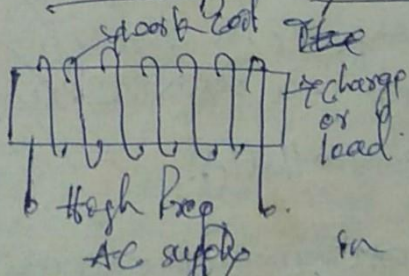 work coil
charge
or
load
High freq
AC supply
in